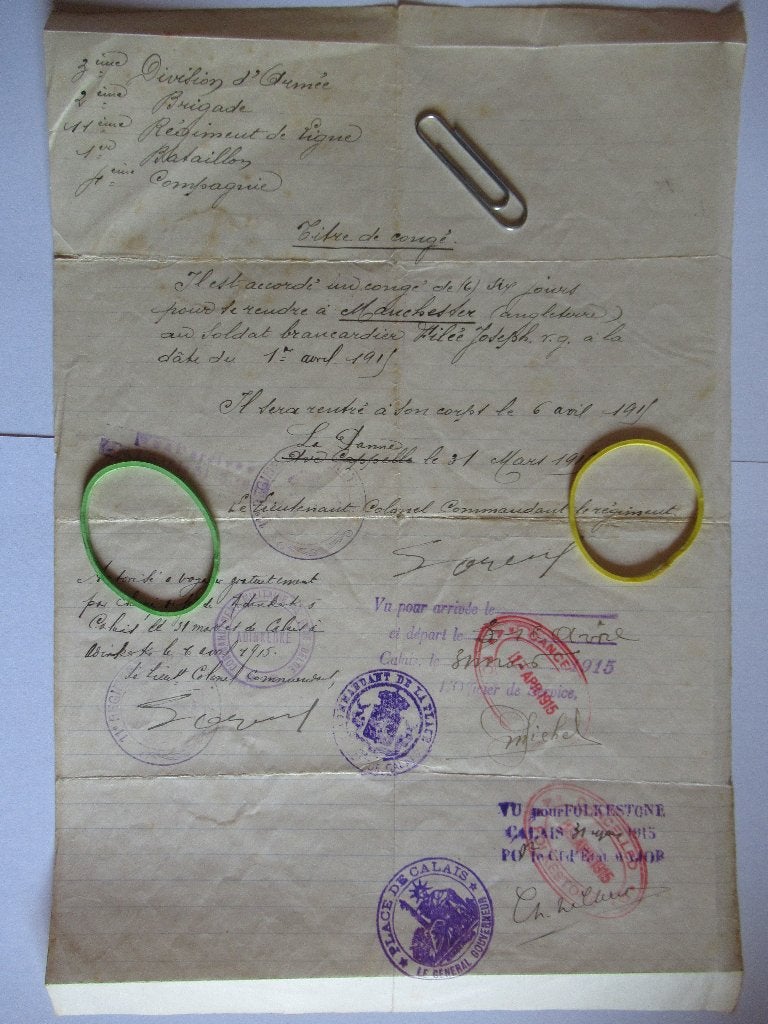 3ème Division d'Armée
2ème Brigade
11ème Régiment de Ligne
1er Bataillon
4ème Compagnie
Titre de congé.
Il est accordé un congé de (6) six jours
pour se rendre à Manchester (angleterre)
au soldat brancardier Filée Joseph. v.g. à la
dâte du 1er avril 1915
Il sera rentré à son corps le 6 avril 1915
La Panne
le 31 Mars 191
Le Lieutenant Colonel Commandant le régiment
Autorisé a voyager gratuitement
par de Adinkerke a
Calais le 31 mars et de Calais à
Adinkerke le 6 avril 1915.
Le Lieut Colonel Commandant,
ADINKERKE
Vu pour arrivée le
et départ le Avril
Calais, le 1915
L'Officier de Service,
Michel
COMMANDANT DE LA PLACE
DE CALAIS
1 APR 1915
VU pour FOLKESTONE
CALAIS 31 mars 1915
APR 1915
PLACE DE CALAIS
LE GÉNÉRAL GOUVERNEUR